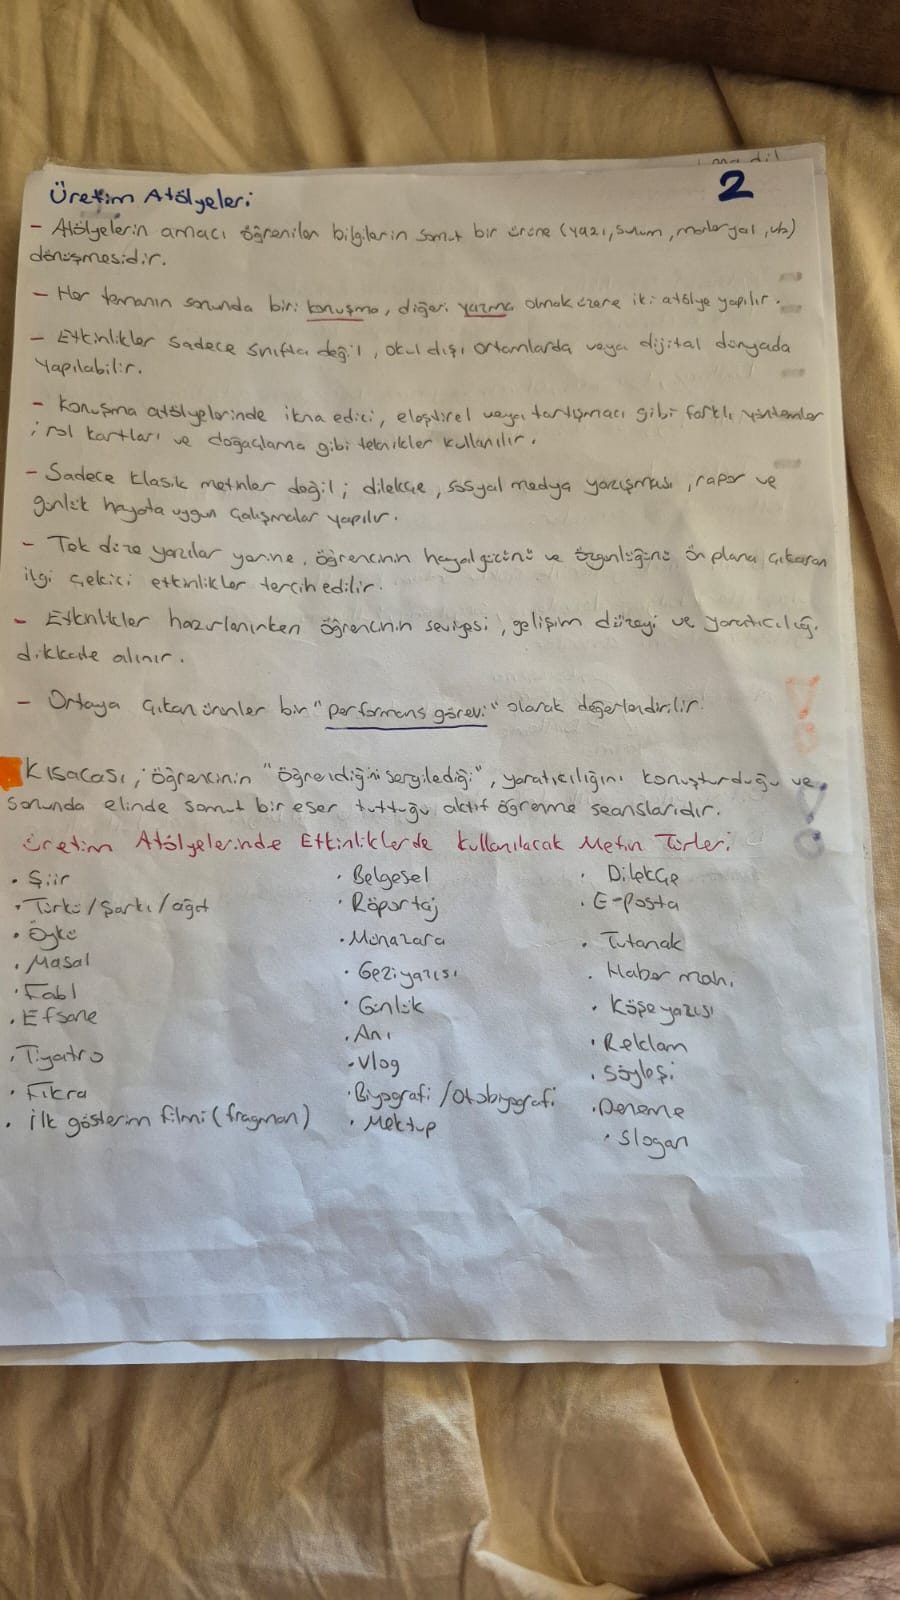 2
Üretim Atölyeleri
- Atölyelerin amacı öğrenilen bilgilerin somut bir ürüne (yazı, sunum, materyal, vb)
dönüşmesidir.
- Her temanın sonunda biri konuşma, diğeri yazma olmak üzere iki atölye yapılır.
- Etkinlikler sadece sınıfta değil, okul dışı ortamlarda veya dijital dünyada
yapılabilir.
- Konuşma atölyelerinde ikna edici, eleştirel veya tartışmacı gibi farklı yöntemler
; rol kartları ve doğaçlama gibi teknikler kullanılır.
- Sadece klasik metinler değil; dilekçe, sosyal medya yazışması, rapor ve
günlük hayata uygun çalışmalar yapılır.
- Tek düze yazılar yerine, öğrencinin hayal gücünü ve özgünlüğünü ön plana çıkaran
ilgi çekici etkinlikler tercih edilir.
- Etkinlikler hazırlanırken öğrencinin seviyesi, gelişim düzeyi ve yaratıcılığı
dikkate alınır.
- Ortaya çıkan ürünler bir "performans görevi" olarak değerlendirilir.
Kısacası; öğrencinin "öğrendiğini sergilediği", yaratıcılığını konuşturduğu ve
sonunda elinde somut bir eser tuttuğu aktif öğrenme seanslarıdır.
Üretim Atölyelerinde Etkinliklerde Kullanılacak Metin Türleri
• Şiir
• Türkü / Şarkı / ağıt
• Öykü
• Masal
• Fabl
• Efsane
• Tiyatro
• Fıkra
• İlk gösterim filmi (fragman)
• Belgesel
• Röportaj
• Münazara
• Gezi yazısı
• Günlük
• Anı
• Vlog
• Biyografi / Otobiyografi
• Mektup
• Dilekçe
• E-posta
• Tutanak
• Haber mtn.
• Köşe yazısı
• Reklam
• Söyleşi
• Deneme
• Slogan